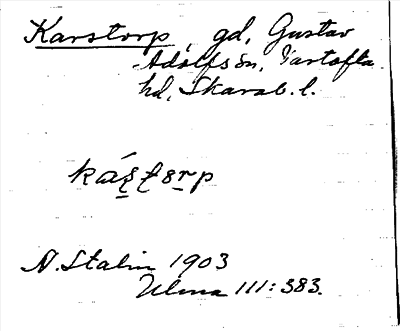 Karstorp, gd, Gustav
Adolfs sn, Vartofta
hd, Skarab. l.
N. Stalin 1903
Ulma 111: 383.